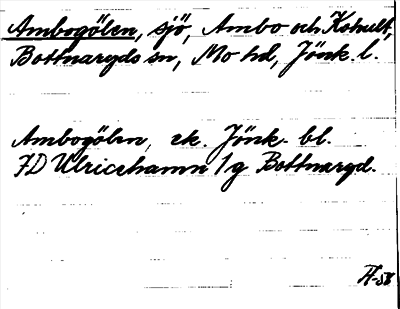 Ambogölen, sjö, Ambo och Kohult,
Bottnaryds sn, Mo hd, Jönk. l.
Ambogölen, ek. Jönk. bl.
7D Ulricehamn 1g Bottnaryd.